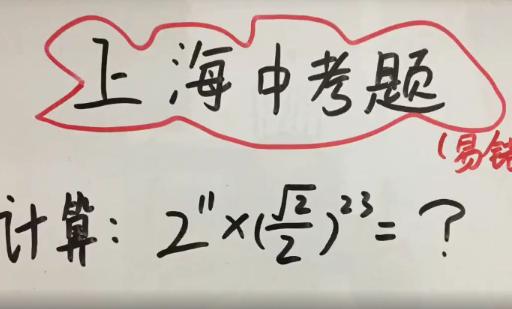 上海中考题
(易错
计算: 2¹¹×(√2/2)²³=?